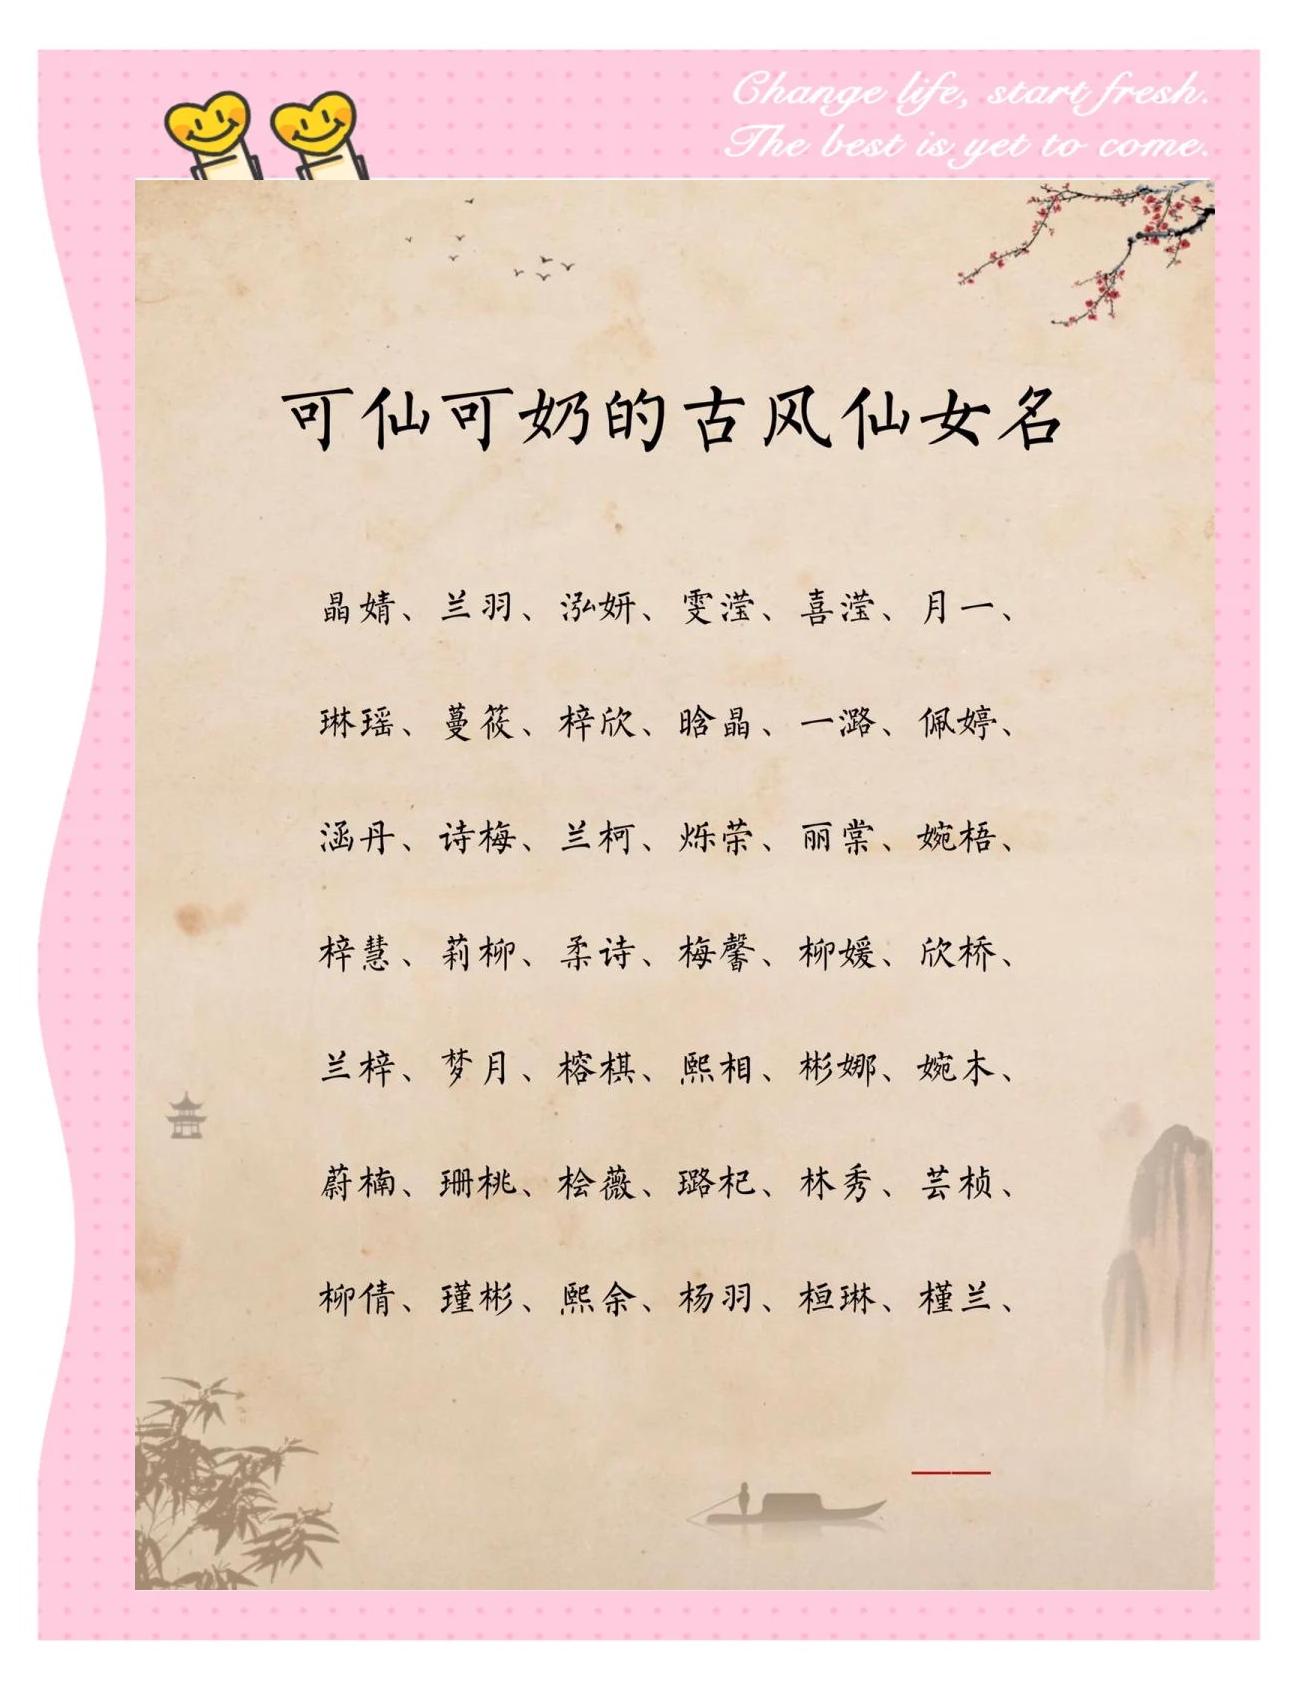 Change life, start fresh.
The best is yet to come.
可仙可奶的古风仙女名
晶婧、兰羽、泓妍、雯滢、喜滢、月一、
琳瑶、蔓筱、梓欣、晗晶、一潞、佩婷、
涵丹、诗梅、兰柯、烁荣、丽棠、婉梧、
梓慧、莉柳、柔诗、梅馨、柳媛、欣桥、
兰梓、梦月、榕棋、熙相、彬娜、婉木、
蔚楠、珊桃、桧薇、璐杞、林秀、芸桢、
柳倩、瑾彬、熙余、杨羽、桓琳、槿兰、